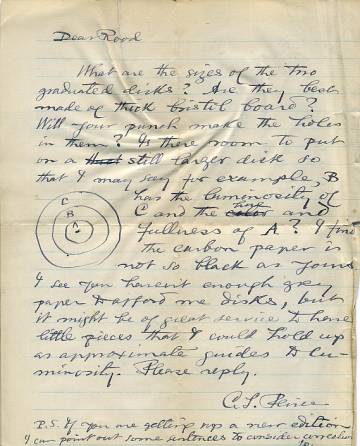 Dear Rood
What are the sizes of the two
graduated disks? Are they best
made of thick bristol board?
Will your punch make the holes
in them? Is there room to put
on a still larger disk so
that I may say for example, B
has the luminosity of
C and the color tint and
fullness of A? I find
the carbon paper is
not so black as yours
C
B
A
I see you haven't enough grey
paper to afford me disks, but
it might be of great service to have
little pieces that I could hold up
as approximate guides to lu-
minosity. Please reply.
C.S. Peirce
P.S. If you are getting up a new edition
I can point out some sentences to consider correcting